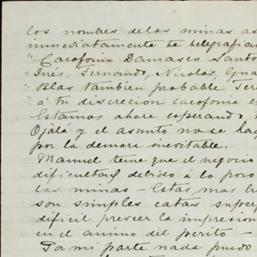 los nombres de las minas as
inmediatamente te telegrafia
"Cacofonia Damasco Santo
Inés, Fernando, Nicolas, Gua
Blas tambien probable Ter
á tu discrecion cacofonia e
Estamos ahora esperando,
Ojalá y el asunto no se hay
por la demora inevitable.
Manuel teme que el negocio
dificultad debido á lo poco
las minas — Estas, mas b
son simples catas super
dificil prever la impresion
en el animo del perito —
Por mi parte nada puedo